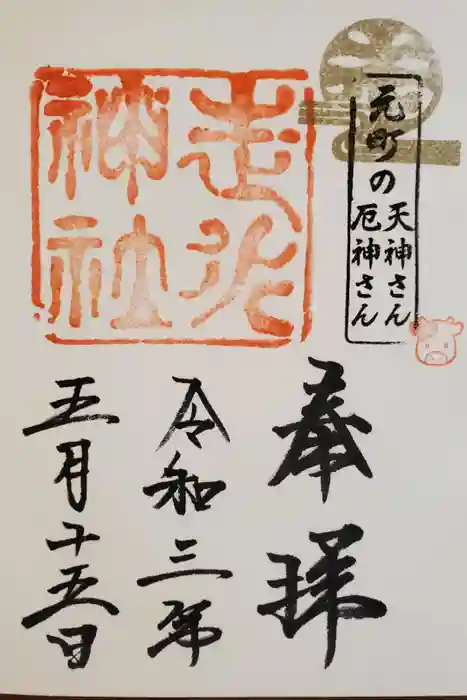 元町の
天神さん
厄神さん
走水
神社
奉拝
令和三年
五月十五日